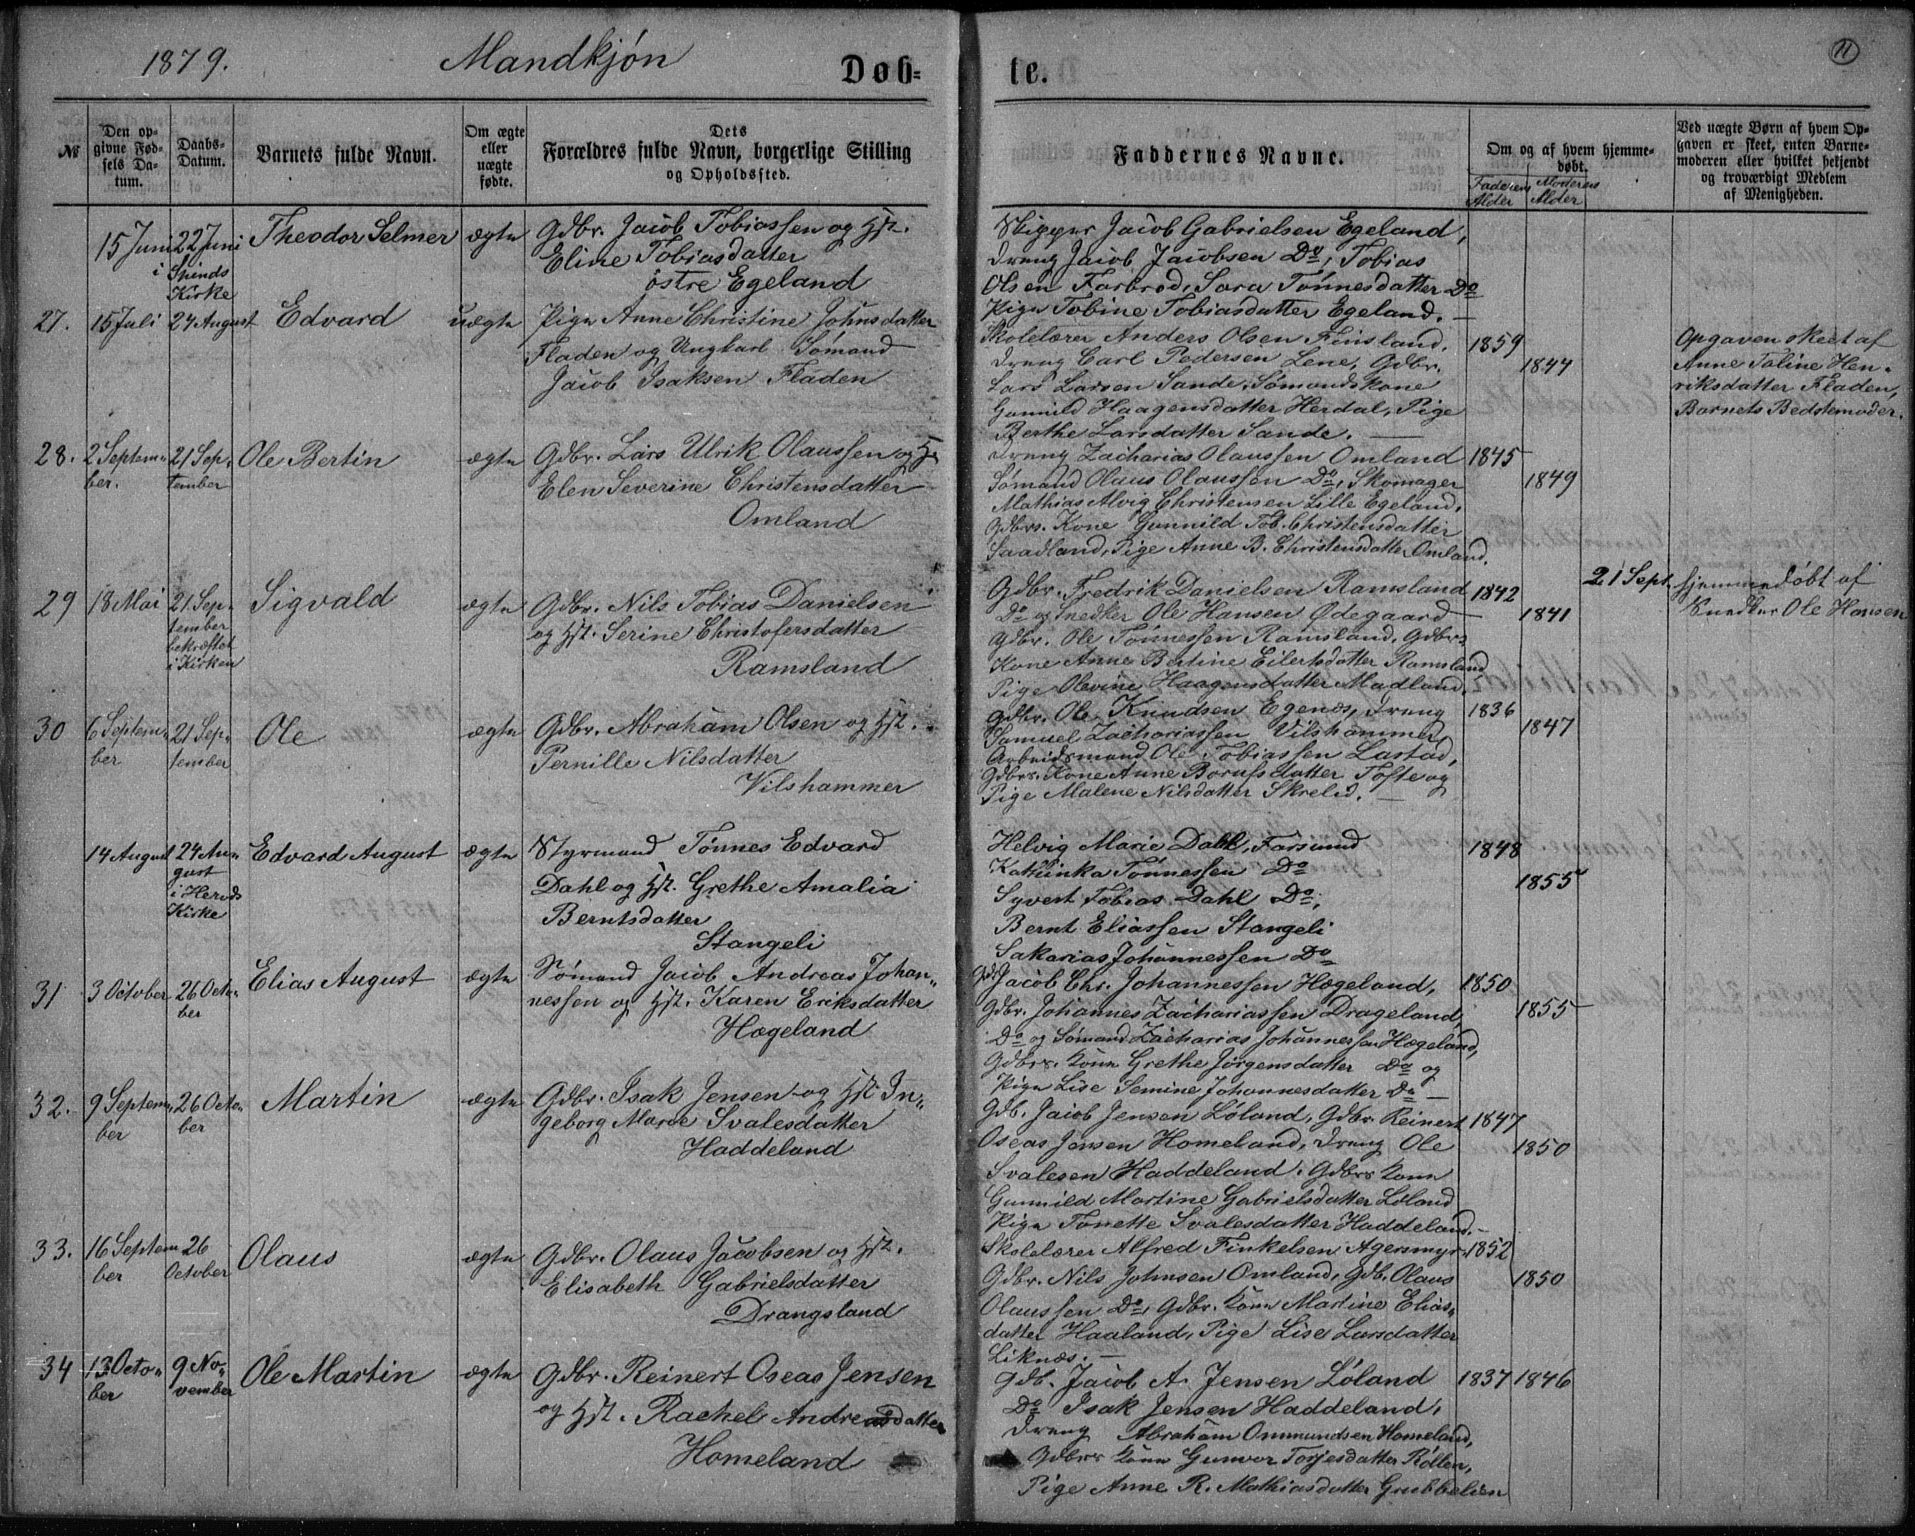 1879. Mandkjøn Døb-
te. 11
№
Den op-
givne Fød-
sels Da-
tum.
Daabs-
Datum.
Barnets fulde Navn.
Om ægte
eller
uægte
fødte.
Dets
Forældres fulde Navn, borgerlige Stilling
og Opholdssted.
Faddernes Navne.
Om og af hvem hjemme-
døbt.
Faderens
Alder
Moderens
Alder
Ved uægte Børn af hvem Op-
gaven er skeet, enten Barne-
moderen eller hvilket bekjendt
og troværdigt Medlem
af Menigheden.
15 Juni 22 Juni
i Spinds
Kirke
Theodor Selmer ægte
Gdbr. Jacob Tobiassen og Hst.
Eline Tobiasdatter
østre Egeland
Skipper Jacob Gabrielsen Egeland,
Dreng Jacob Jacobsen Do, Tobias
Olsen Farbrod, Sara Tønnesdatter Do
Pige Tobine Tobiasdatter Egeland. —
27. 15 Juli 24 August Edvard uægte
Pige Anne Christine Johnsdatter
Fladen og Ungkarl Sømand
Jacob Isaksen Fladen
Skolelærer Anders Olsen Finsland, 1859
Dreng Carl Pedersen Lene, Gdbr. 1844
Lars Larsen Sande, Sømandskone
Gunnild Haagensdatter Herdal, Pige
Berthe Larsdatter Sande. —
Opgaven skeet af
Anne Taline Hen-
riksdatter Fladen,
Barnets Bedstemoder.
28. 2 Septem-
ber.
21 Sep-
tember
Ole Bertin ægte
Gdbr. Lars Ulrik Olaussen og H.
Elen Severine Christensdatter
Omland
Dreng Zacharias Olaussen Omland 1845
Sømand Olaus Olaussen Do, Skomager 1849
Mathias Alvig Christensen Lille Egeland,
Gdbrs. Kone Gunnild Tob. Christensdatter
Saadland, Pige Anne B. Christensdatter Omland.
29 18 Mai 21 Sep-
tember
bekræftet
i Kirken
Sigvald ægte
Gdbr. Nils Tobias Danielsen
og Hst. Serine Christofersdatter
Ramsland
Gdbr. Fredrik Danielsen Ramsland 1842
Do og Snedker Ole Hansen Ødegaard 1841
Gdbr. Ole Tønnessen Ramsland, Gdbrs
Kone Anne Bertine Eilertsdatter Ramsland
Pige Olevine Haagensdatter Madland.
21 Sept. hjemmedøbt af
Snedker Ole Hansen
30 6 Septem-
ber
21 Sep-
tember
Ole ægte
Gdbr. Abraham Olsen og Hst.
Pernille Nilsdatter
Vilshammer
Gdbr. Ole Knudsen Egenes, Dreng 1836
Samuel Zachariassen Vilshammer, 1847
Arbeidsmand Ole Tobiassen Lastad,
Gdbrs. Kone Anne Borufsdatter Tofte og
Pige Malene Nilsdatter Skreled. —
14 August 24 Au-
gust
i Herads
Kirke
Edvard August ægte
Styrmand Tønnes Edvard
Dahl og Hst. Grethe Amalia
Berntsdatter
Stangeli
Helvig Marie Dahl, Farsund 1848
Kathinka Tønnessen Do 1855
Syvert Tobias Dahl Do,
Bernt Eliassen Stangeli
Sakarias Johannessen Do
31 3 October 26 Octo-
ber
Elias August ægte
Sømand Jacob Andreas Johan-
nessen og Hst. Karen Eriksdatter
Hægeland
Gdb. Jacob Chr. Johannessen Hægeland, 1850
Gdbr. Johannes Zachariassen Drageland, 1855
Do og Sømand Zacharias Johannessen Hægeland,
Gdbrs. Kone Grethe Jørgensdatter Do og
Pige Lise Semine Johannesdatter Do —
32. 9 Septem-
ber
26 Octo-
ber
Martin ægte
Gdbr. Isak Jensen og Hst In-
geborg Marie Svalesdatter
Haddeland
Gdb. Jacob Jensen Løland, Gdbr. Reinert 1847
Oseas Jensen Homeland, Dreng Ole 1850
Svalesen Haddeland, Gdbrs Kone
Gunnild Martine Gabrielsdatter Løland
Pige Tonette Svalesdatter Haddeland.
33. 16 Septem
ber
26
October
Olaus ægte
Gdbr. Olaus Jacobsen og Hst.
Elisabeth Gabrielsdatter
Drangsland
Skolelærer Alfred Finkelsen Agersmyr 1852
Gdbr. Nils Johnsen Omland, Gdb. Olaus 1850
Olaussen Do, Gdbr. Kone Martine Elias-
datter Haaland, Pige Lise Larsdatter
Liknæs. —
34 13 Octo-
ber
9 No-
vember
Ole Martin ægte
Gdbr. Reinert Oseas Jensen
og Hst. Rachel Andreasdatter
Homeland
Gdb. Jacob A. Jensen Løland 1837 1846
Do Isak Jensen Haddeland,
Dreng Abraham Ommundsen Homeland,
Gdbrs Kone Gunvor Torjesdatter Røllen,
Pige Anne R. Mathiasdatter Grubbelien